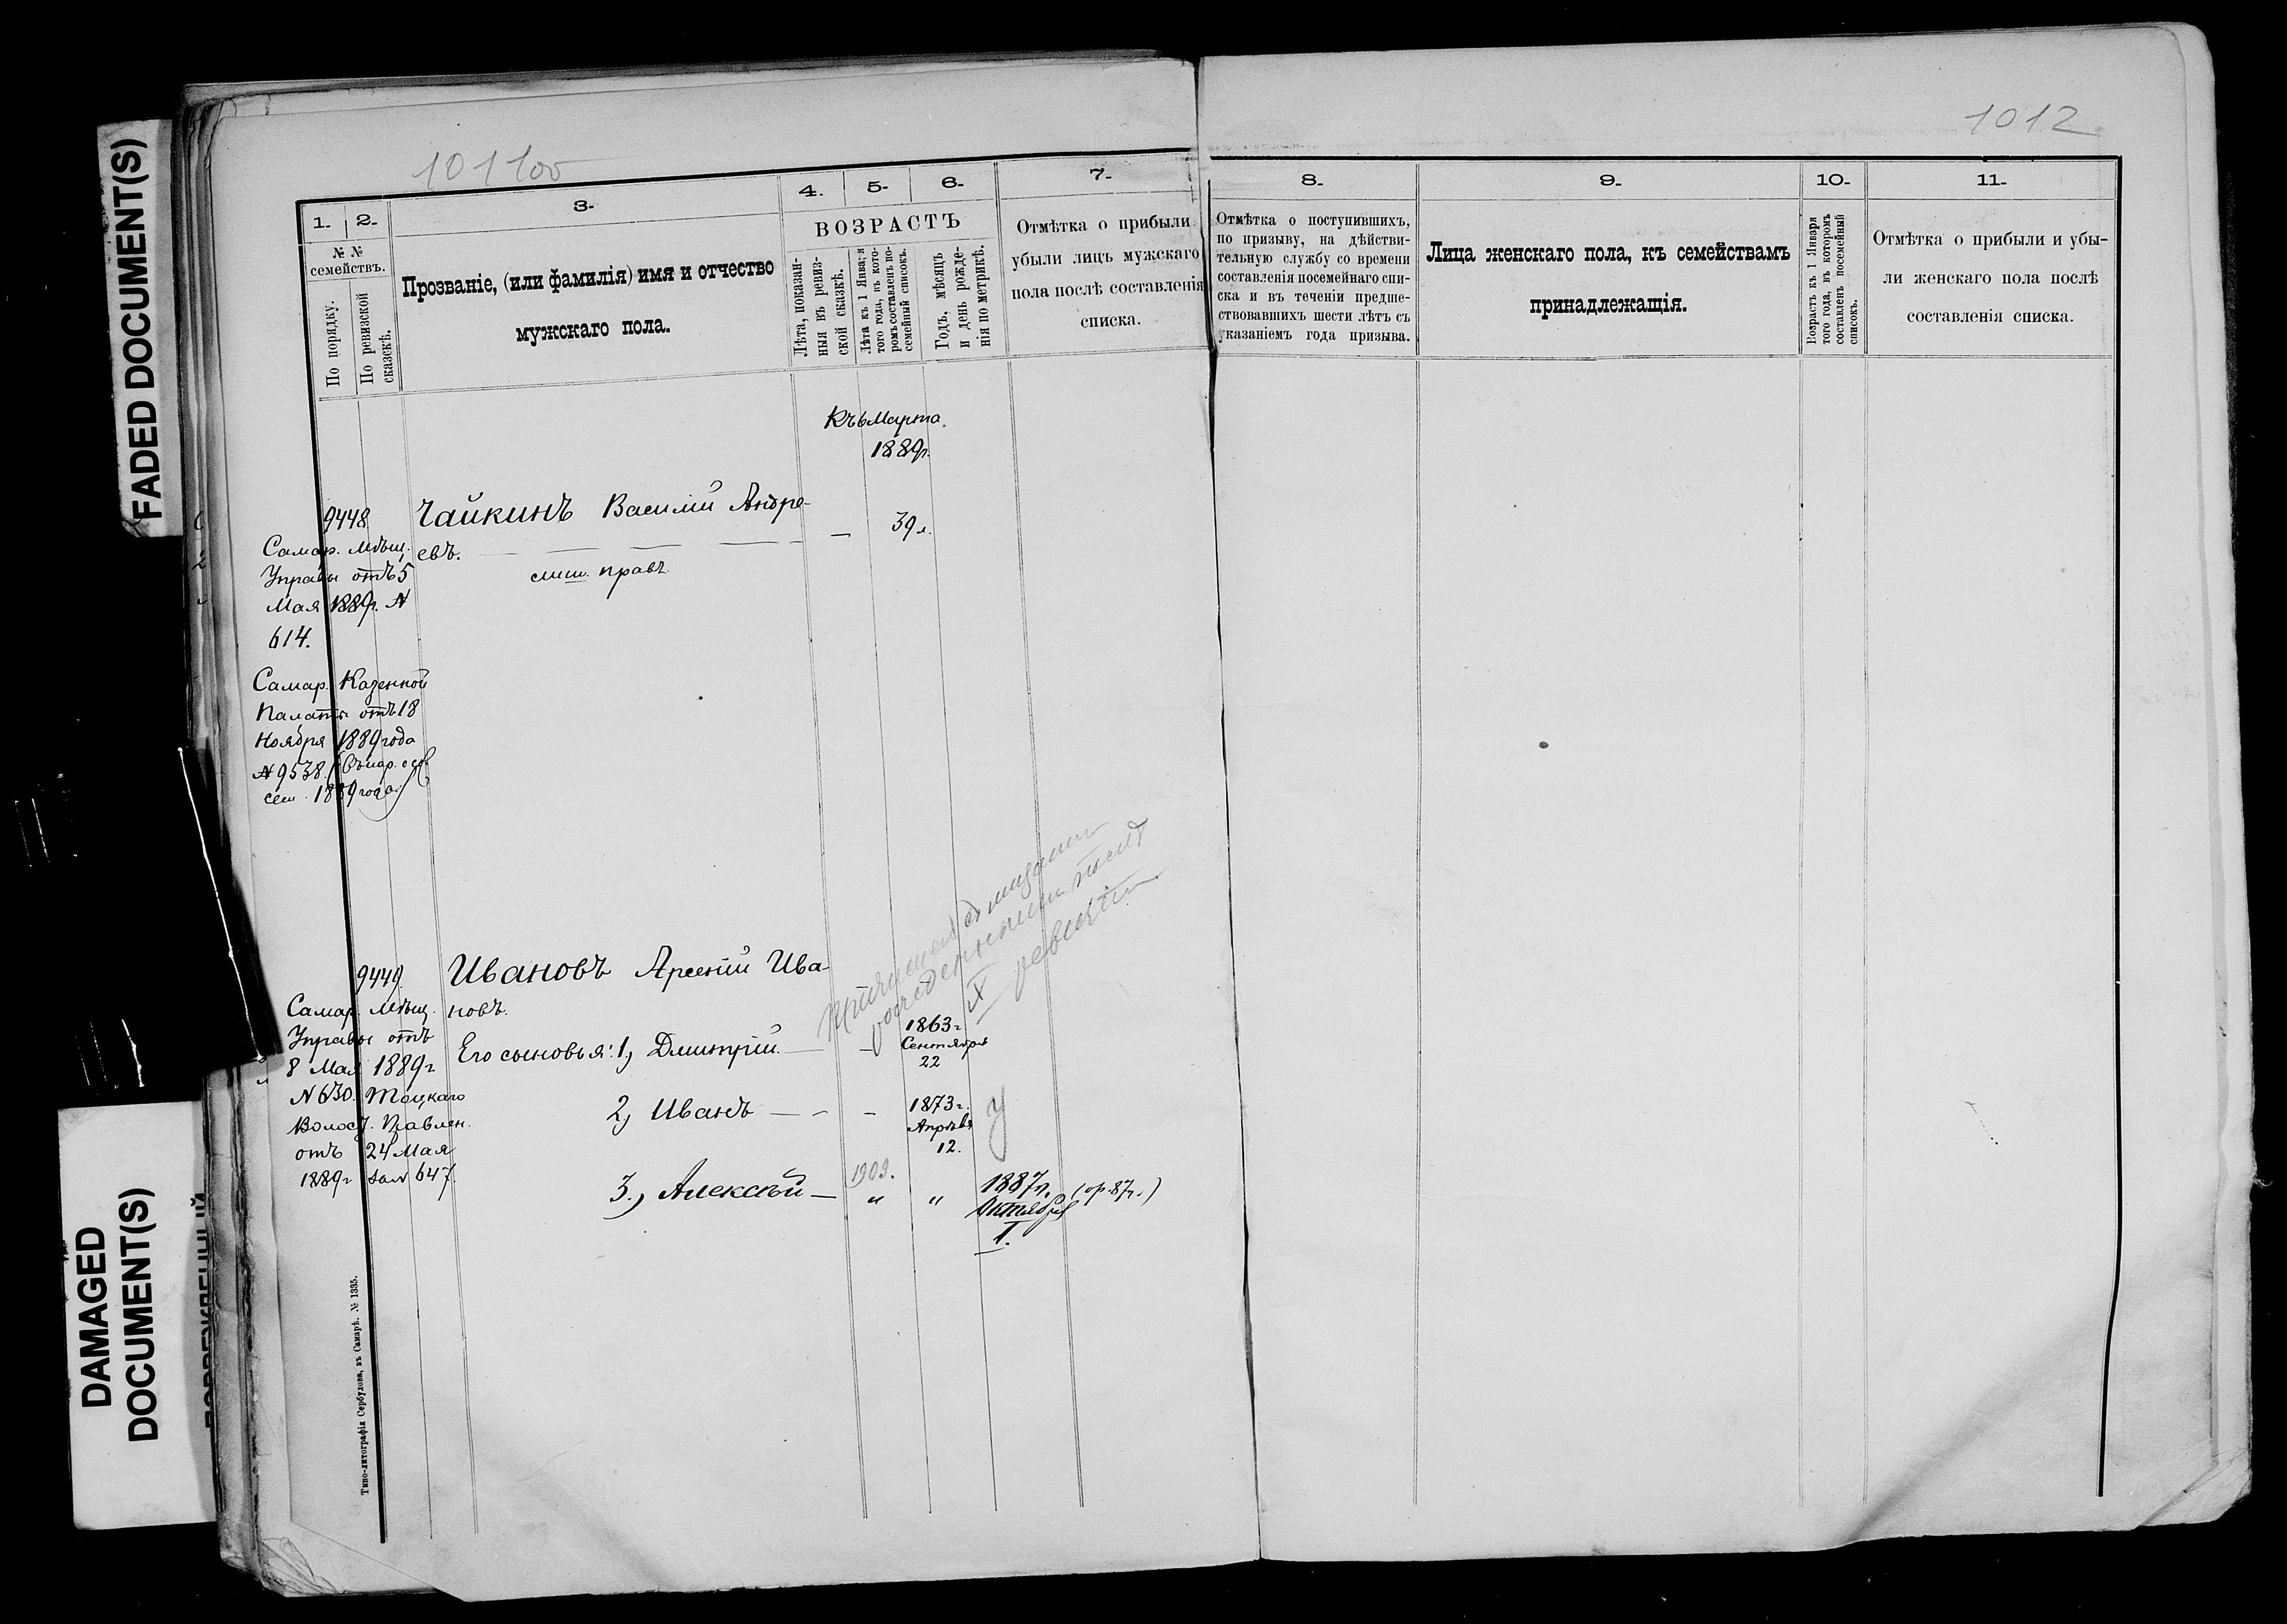 FADED DOCUMENT(S)
DAMAGED
DOCUMENT(S)
1011об
1012
1.
2.
3.
4.
5.
6.
7.
8.
9.
10.
11.
№ №
семействъ.
По порядку.
По ревизской
сказкѣ.
Прозваніе, (или фамилія) имя и отчество
мужскаго пола.
ВОЗРАСТЪ
Лѣта, показан-
ныя въ ревиз-
ской сказкѣ.
Лѣта къ 1 Янва; я
того года, въ кото-
ромъ составленъ по-
семейный списокъ.
Годъ, мѣсяцъ
и день рожде-
нія по метрикѣ.
Отмѣтка о прибыли
убыли лицъ мужскаго
пола послѣ составленія
списка.
Отмѣтка о поступившихъ,
по призыву, на дѣйстви-
тельную службу со времени
составленія посемейнаго спи-
ска и въ теченіи предше-
ствовавшихъ шести лѣтъ съ
указаніемъ года призыва.
Лица женскаго пола, къ семействамъ
принадлежащія.
Возрастъ къ 1 Января
того года, въ которомъ
составленъ посемейный
списокъ.
Отмѣтка о прибыли и убы-
ли женскаго пола послѣ
составленія списка.
Къ 6 Марта
1889г.
9448
Чайкинъ Василій Андре-
евъ.
— 39 л.
лиш. правъ
Самар. Мѣщ.
Управы отъ 5
Мая 1889г. №
614.
Самар. Казенной
Палаты отъ 18
Ноября 1889 года
№ 9538.
сем. 1889 года)
съ
рожденными послѣ
X ревизіи
9449
Ивановъ Арсеній Ива-
новъ.
Самар. Мѣщ.
Управы отъ
8 Мая 1889г
№ 630. Тоцкаго
Волос. Правлен.
отъ 24 Мая
1889г за № 647.
Его сыновья: 1, Дмитрій — —
1863г
Сентября
22
2, Иванъ — - -
1873г.
Апрѣля
12.
У
3., Алексѣй — " "
1909.
1887г. (ор. 87г.)
Октября
1.
Типо-литографія Сербулова, въ Самарѣ. № 1335.